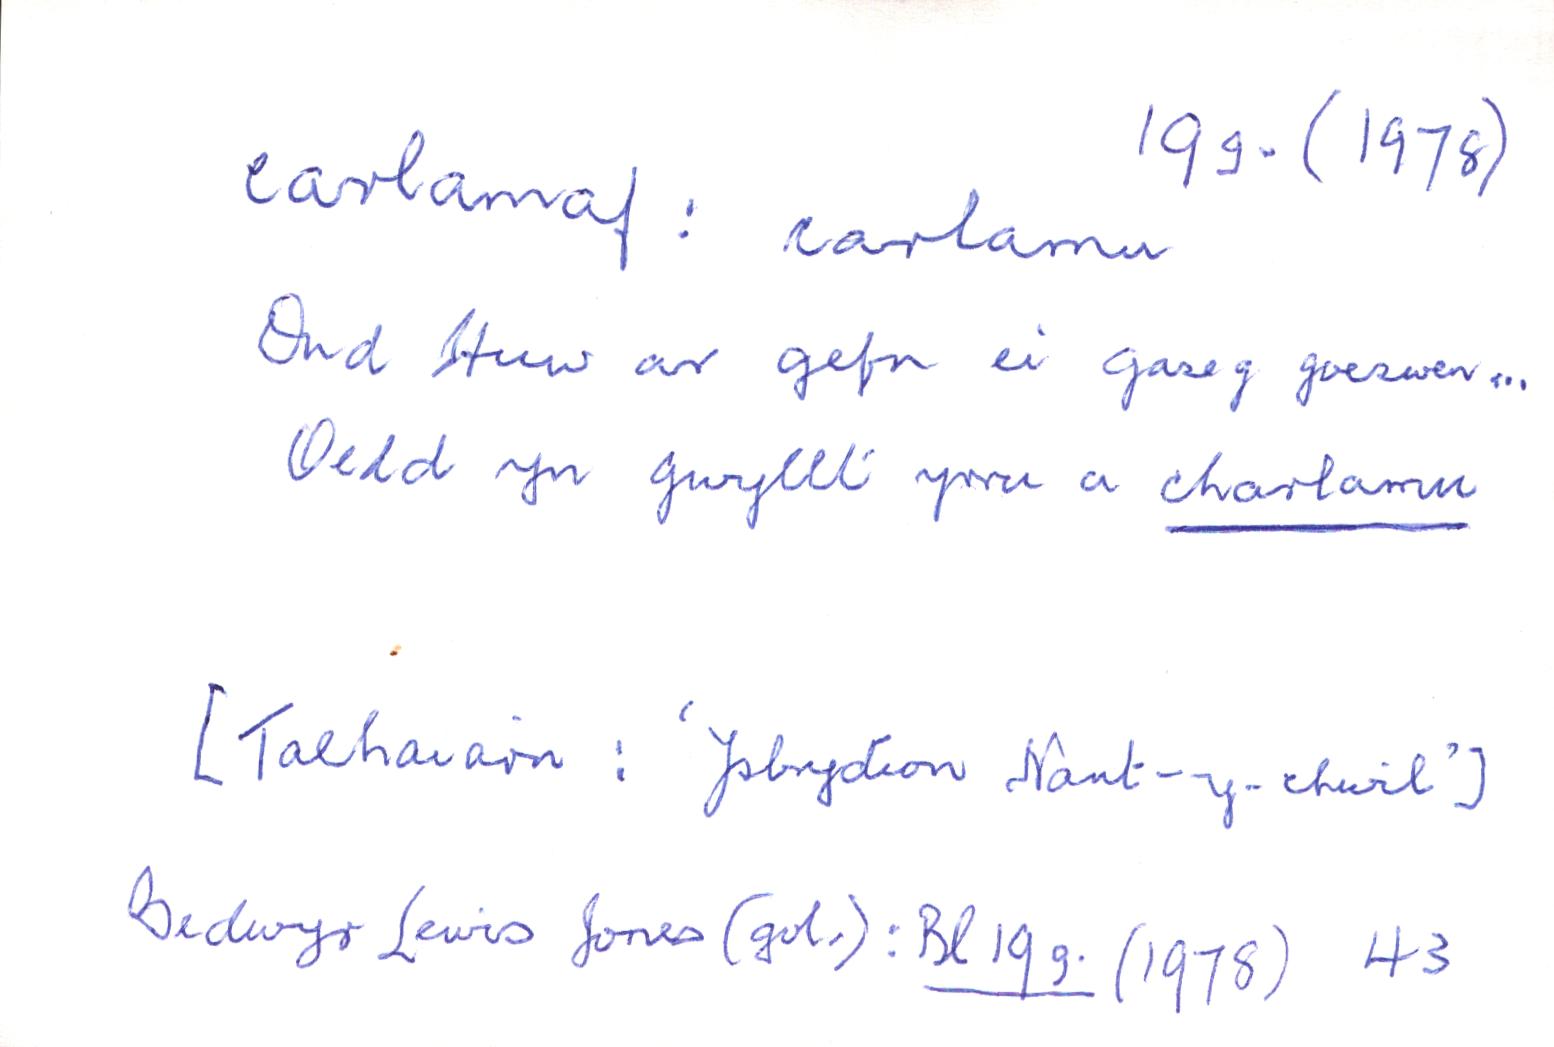 19g. (1978)
carlamaf : carlamu
Ond Huw ar gefn ei gaseg goeswen...
Oedd yn gwyllt yrru a charlamu
[Talhaiarn : 'Ysbrydion Nant-y-chwil']
Bedwyr Lewis Jones (gol.) : Bl 19g. (1978) 43